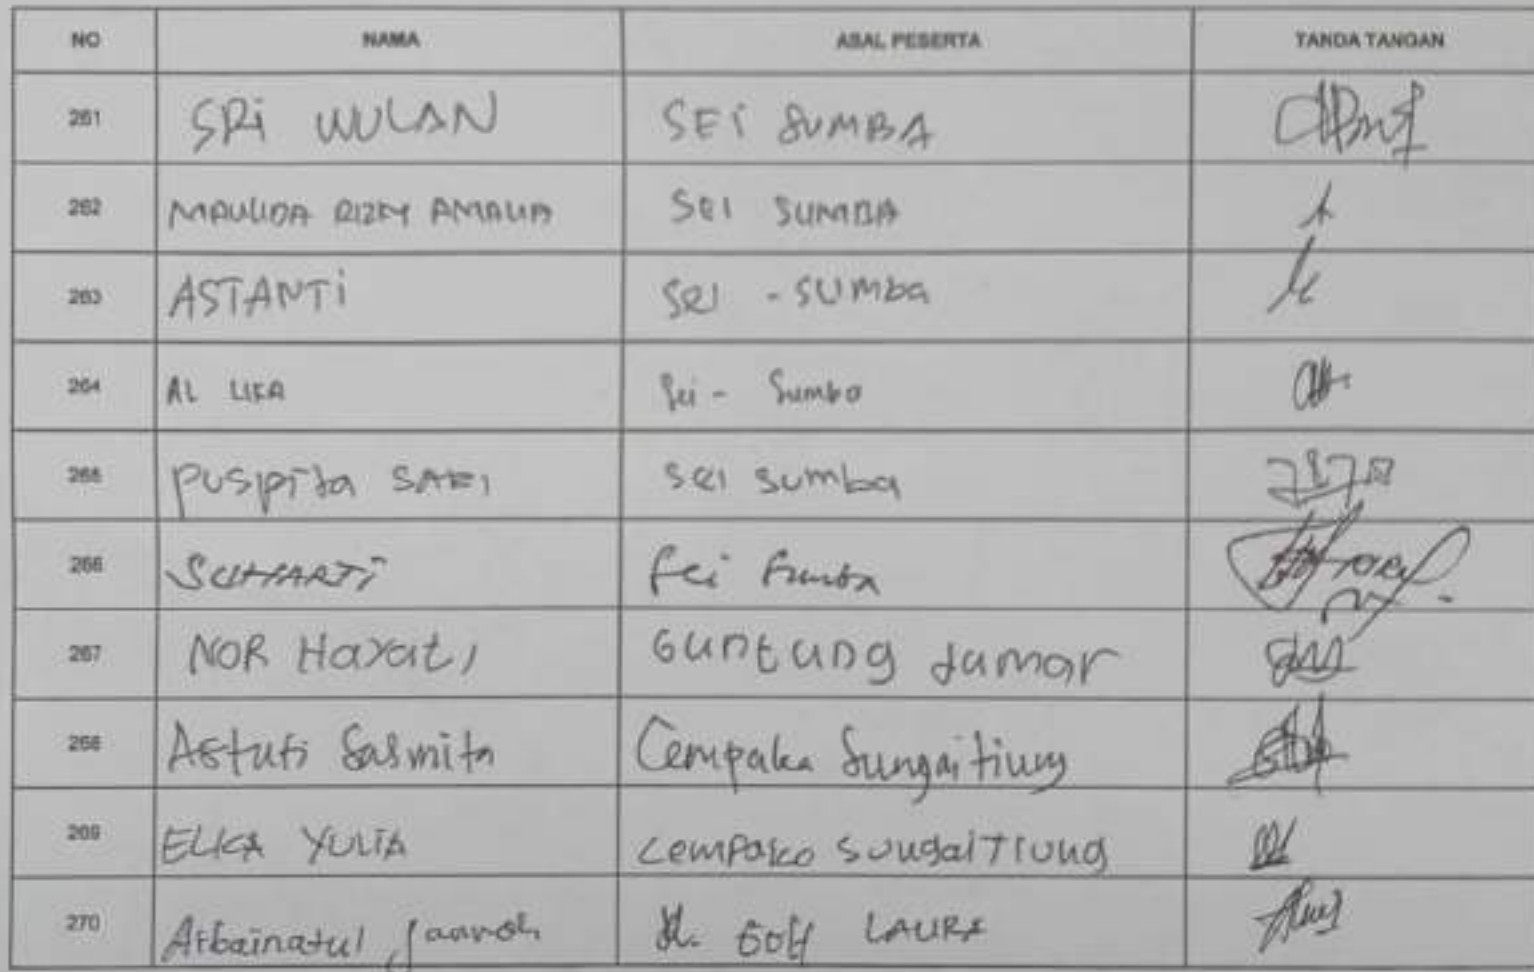 NO NAMA ASAL PESERTA TANDA TANGAN
261 SRi WULAN SEi SUMBA
262 MAULIDA RIZKY AMALIA SEI SUMBA
263 ASTANTi SEI - SUMba
264 AL LIKA Sei - Sumba
265 PUSPiTa SARI SEI Sumba
266 SUHARTi Sei Sumba
267 NOR Hayati Guntung damar
268 Astuti Sasmita Cempaka Sungai tiung
269 ELKA YULIA Cempaka Sungai Tiung
270 Arbainatul Jannah Jl. Golf LAURA